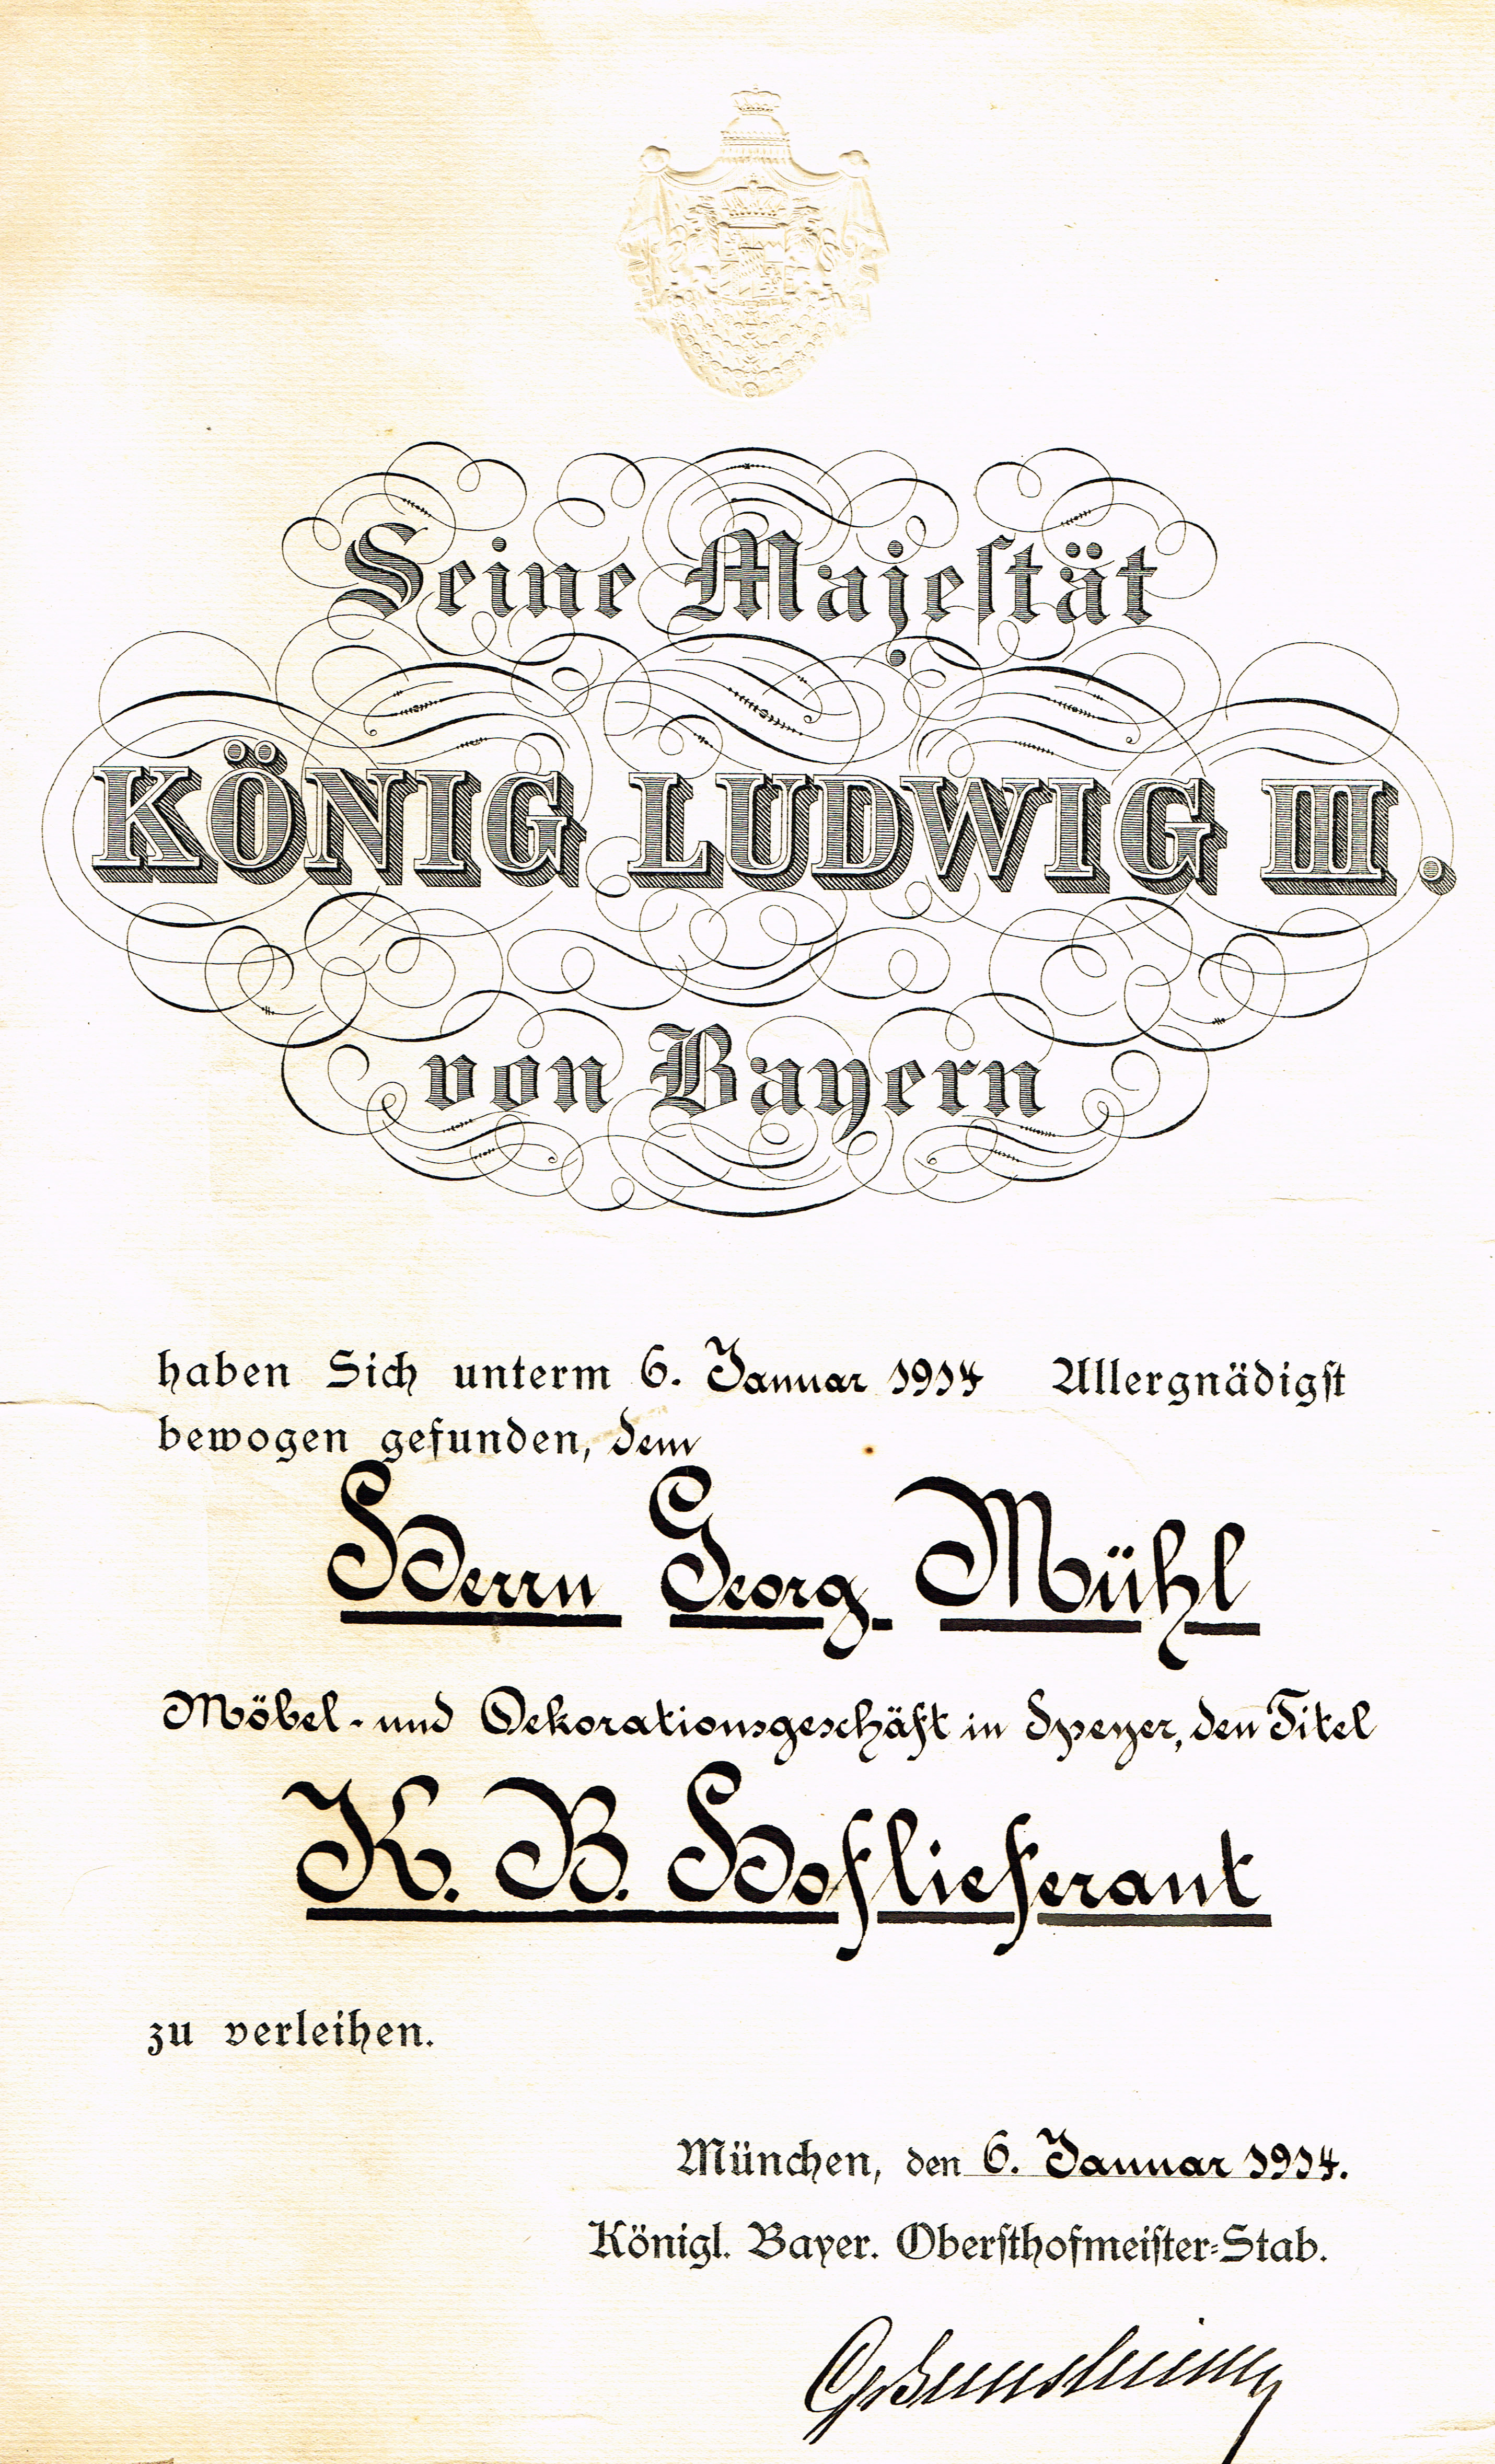 Seine Majeſtät
KÖNIG LUDWIG III.
von Bayern
haben Sich unterm 6. Januar 1914 Allergnädigſt
bewogen gefunden, dem
Herrn Georg Mühl
Möbel- und Dekorationsgeschäft in Speyer, den Titel
K. B. Hoflieferant
zu verleihen.
München, den 6. Januar 1914.
Königl. Bayer. Oberſthofmeiſter-Stab.